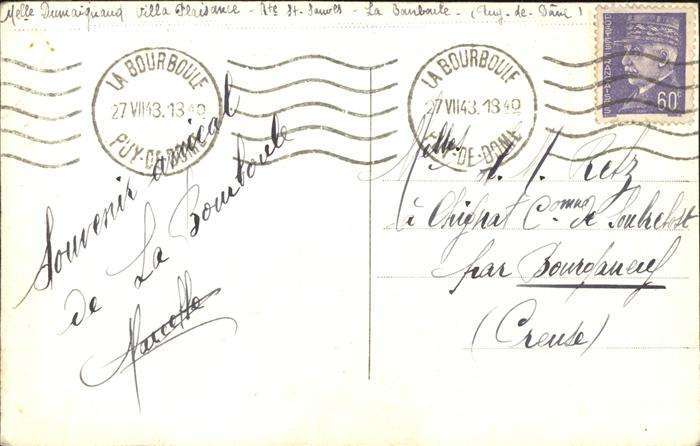 Melle Dumaignaud Villa Plaisance - Rte St-Sauves - La Bourboule - (Puy-de-Dôme)
LA BOURBOULE
27 VII 43. 18 40
PUY-DE-DOME
LA BOURBOULE
27 VII 43. 18 40
PUY-DE-DOME
POSTES FRANÇAISES
60c
Souvenir amical
de La Bourboule
Marcelle
Melles et M. Retz
à Chignat Comne de Soubrebost
par Bourganeuf
(Creuse)